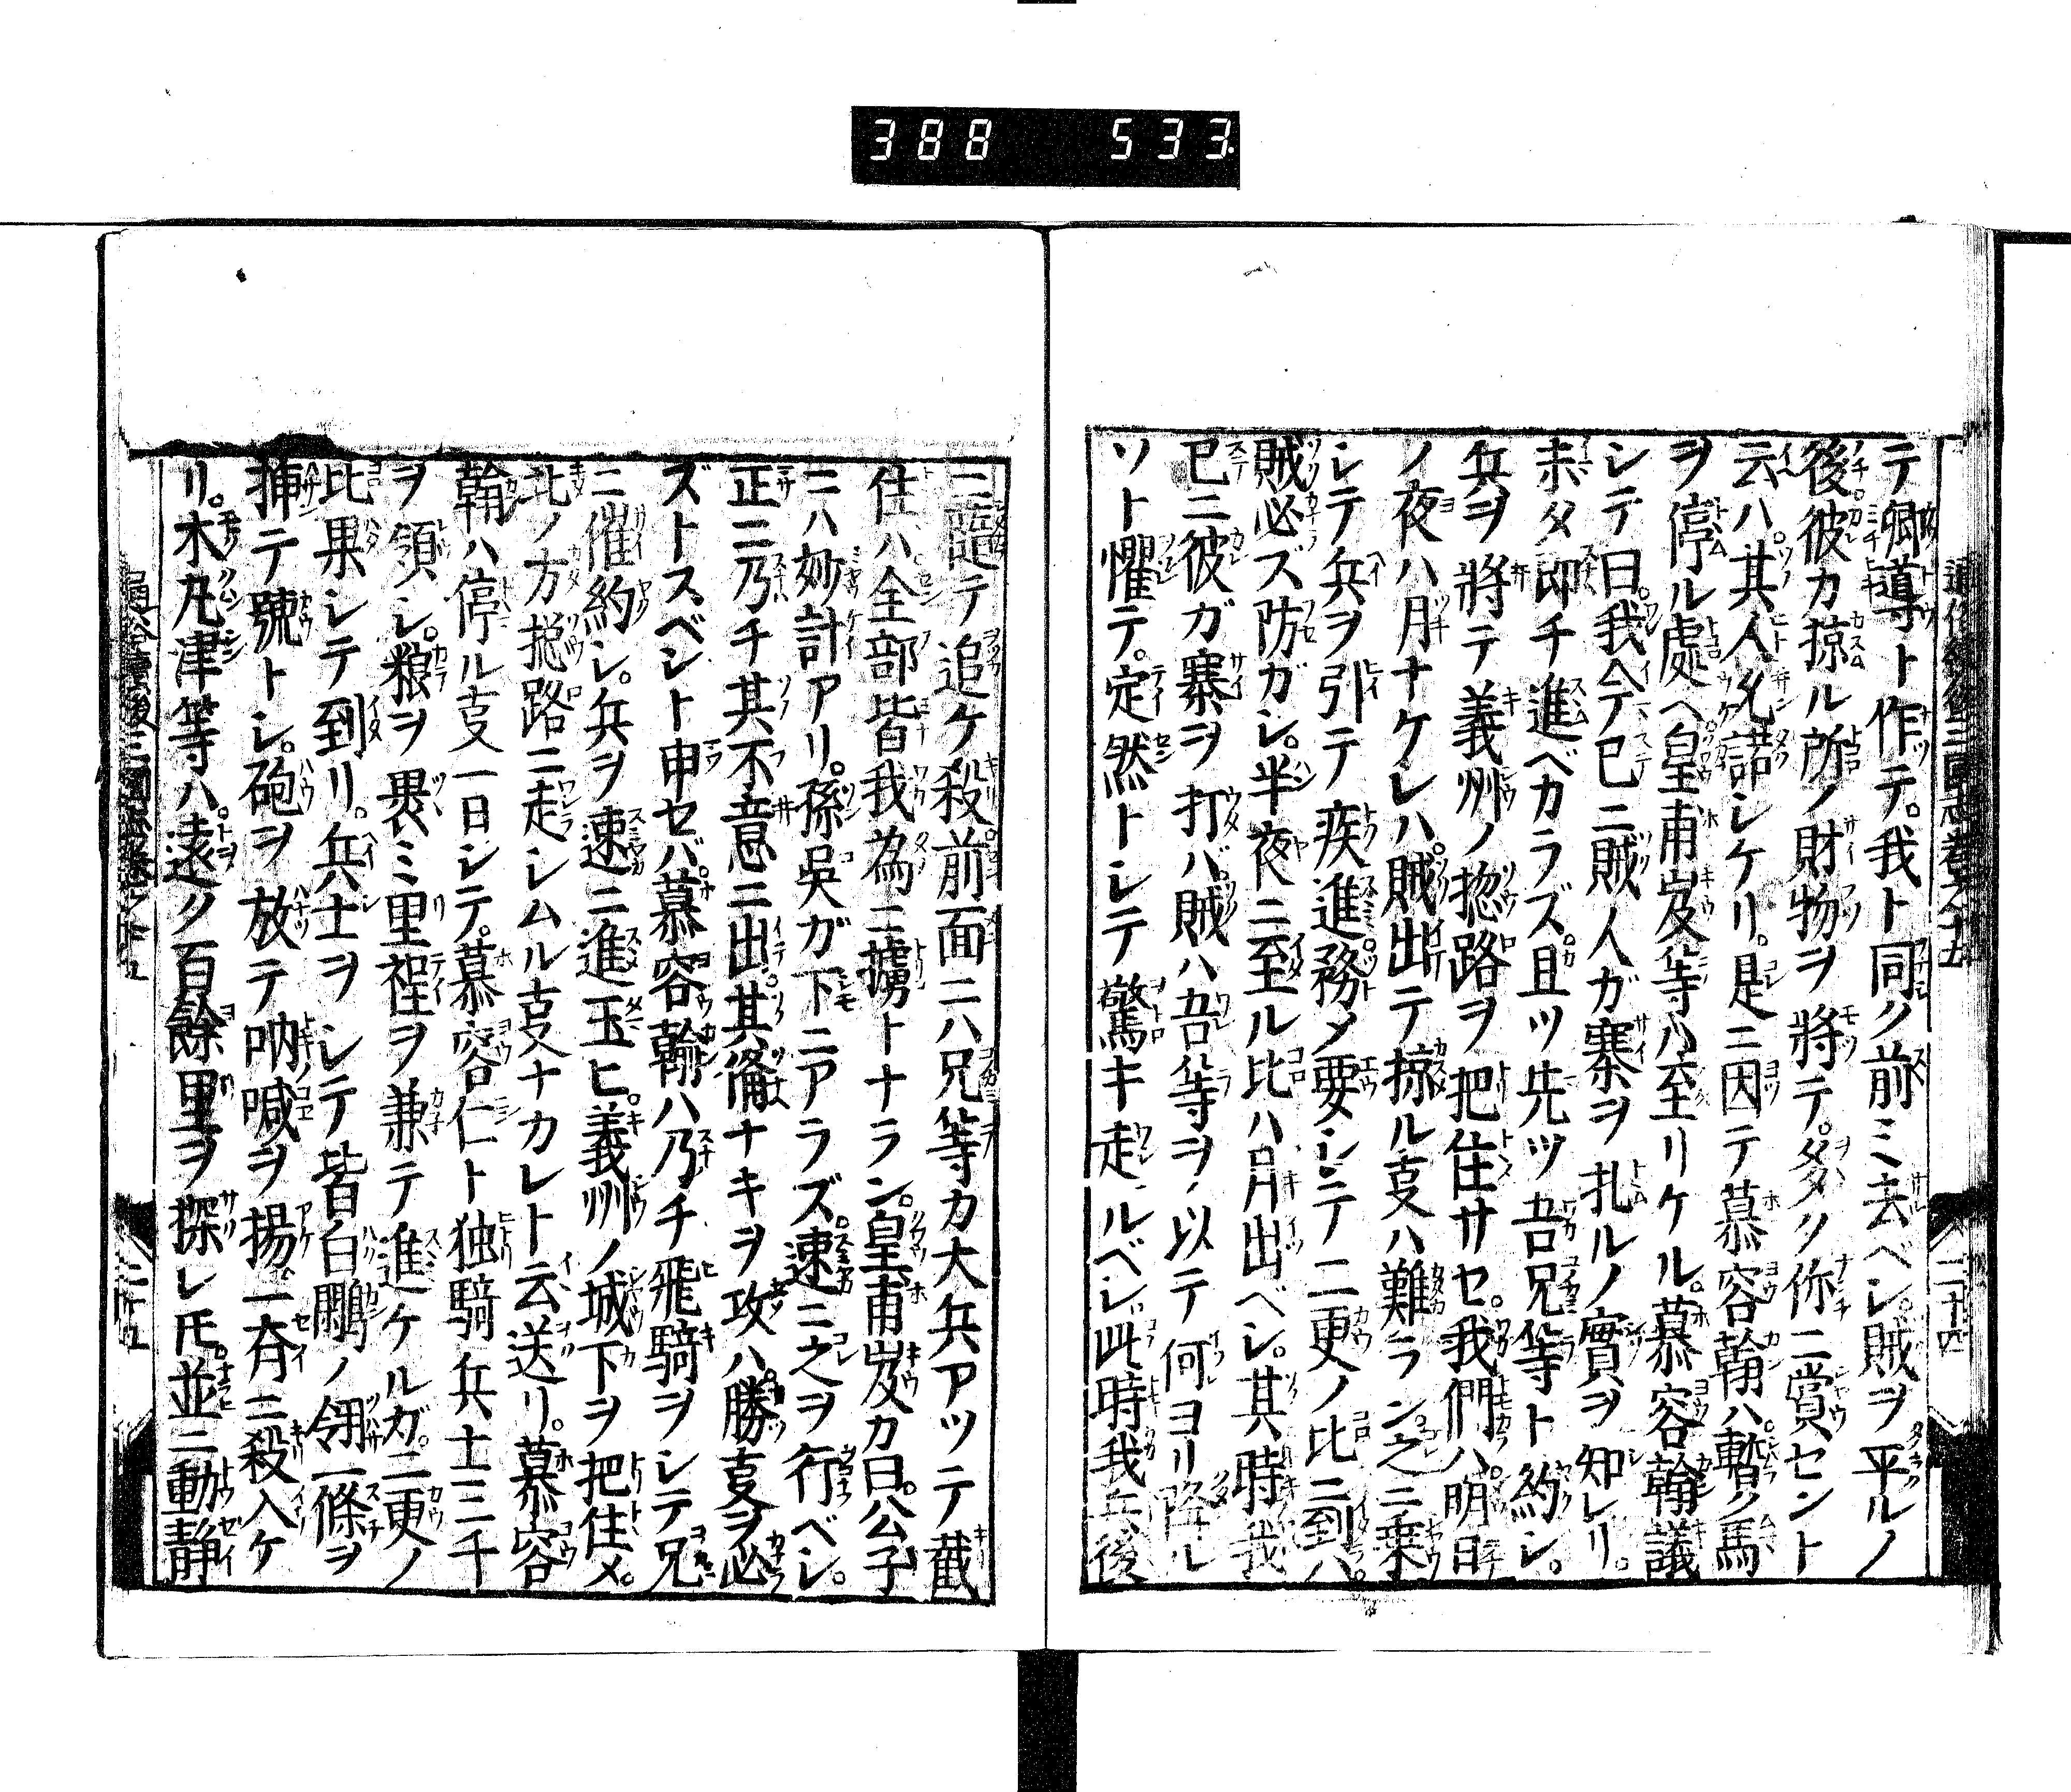 388 533.
テ嚮導ト作テ。我ト同ク前ミ去ベシ。賊ヲ平ルノ
後。彼カ掠ル所ノ財物ヲ將テ。多ク你ニ賞セント
云ハ。其人允諾シケリ。是ニ因テ慕容翰ハ。暫ク馬
ヲ停ル處ヘ。皇甫岌等ハ至リケル。慕容翰議
シテ曰。我今已ニ賊人ガ寨ヲ扎ルノ實ヲ知レリ。
未タ即チ進ベカラズ。且ツ先ツ吾兄等ト約シ。
兵ヲ將テ義州ノ惣路ヲ把住サセ。我們ハ。明日
ノ夜ハ月ナケレハ。賊出テ掠ル叓ハ難ラン。之ニ乗
シテ兵ヲ引テ疾進。務メ要シテ二更ノ比ニ到ハ。
賊必ズ防ガシ。半夜ニ至ル比ハ月出ベシ。其時我
已ニ彼ガ寨ヲ打バ。賊ハ吾等ヲ以テ何ヨリ降ル
ソト懼テ。定然トシテ驚キ走ルベシ。此時我兵後
ニ隨テ追ケ殺。前面ニハ兄等カ大兵アツテ截
住ハ。全部皆我為ニ擄トナラン。皇甫岌カ曰。公子
ニハ妙計アリ。孫吳ガ下ニアラズ。速ニ之ヲ行ベシ。
正ニ乃チ其不意ニ出。其備ナキヲ攻ハ。勝叓ヲ必
ズトスベント申セバ。慕容翰ハ乃チ飛騎ヲシテ兄
ニ催約シ。兵ヲ速ニ進玉ヒ。義州ノ城下ヲ把住メ。
北ノ方揔路ニ走シムル叓ナカレト云送リ。慕容
翰ハ停ル叓一日シテ。慕容仁ト独騎兵士三千
ヲ領シ。粮ヲ褁ミ里程ヲ兼テ進ケルガ。二更ノ
比果シテ到リ。兵士ヲシテ皆白鷴ノ翎一條ヲ
挿テ號トシ。砲ヲ放テ吶喊ヲ揚。一斉ニ殺入ケ
リ。木丸津等ハ。遠ク百餘里ヲ探レ𪜈。並ニ動静
二十四